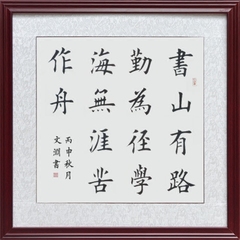 書山有路
勤為徑學
海無涯苦
作舟
丙申秋月
文澗書